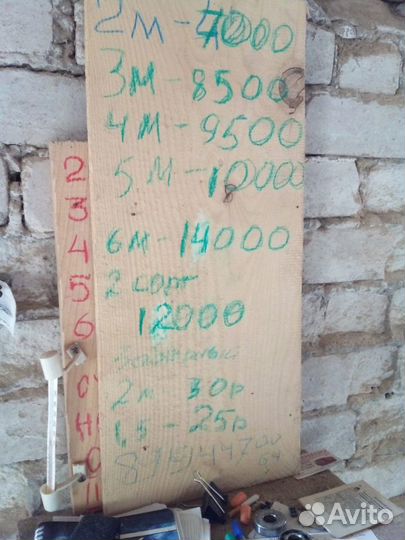 2м - 7000
3м - 8500
4м - 9500
5м - 10000
6м - 14000
2 сорт
12000
2м 30р
1,5 - 25р
2
3
4
5
6
Avito